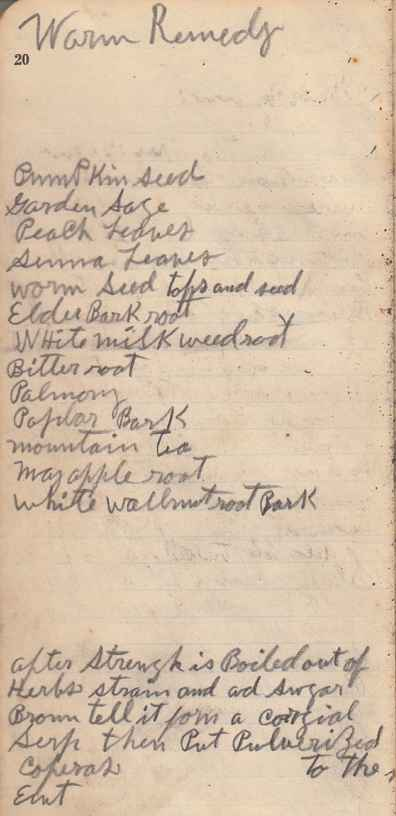 Warm Remedy
20
PumPKin seed
Garden Sage
PeaCh Leaves
Sinna Leaves
worm Seed tops and seed
Elder BarK root
WHite milK weed root
Bitter root
Palmony
Poplar BarK
mountain tea
may apple root
white wallnut root BarK
after Strengh is Boiled out of
Herbs strain and ad Swgar
Brown tell it form a cordial
Serp then Put Pulverized
Coperas to the